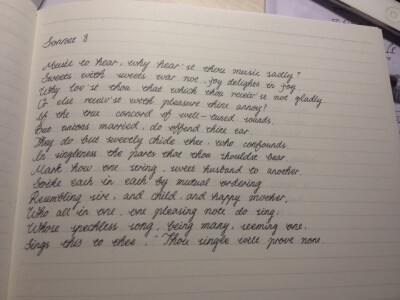 Sonnet 8
Music to hear, why hear'st thou music sadly?
Sweets with sweets war not, joy delights in joy
Why lov'st thou that which thou receiv'st not gladly
Or else receiv'st with pleasure thine annoy?
If the true concord of well-tuned sounds,
But unions married, do offend thine ear
They do but sweetly chide thee, who confounds
In singleness the parts that thou shouldst bear.
Mark how one string, sweet husband to another,
Strike each in each by mutual ordering
Resembling sire, and child, and happy mother,
Who all in one, one pleasing note do sing:
Whose speechless song, being many, seeming one.
Sings this to thee, "Thou single wilt prove none.